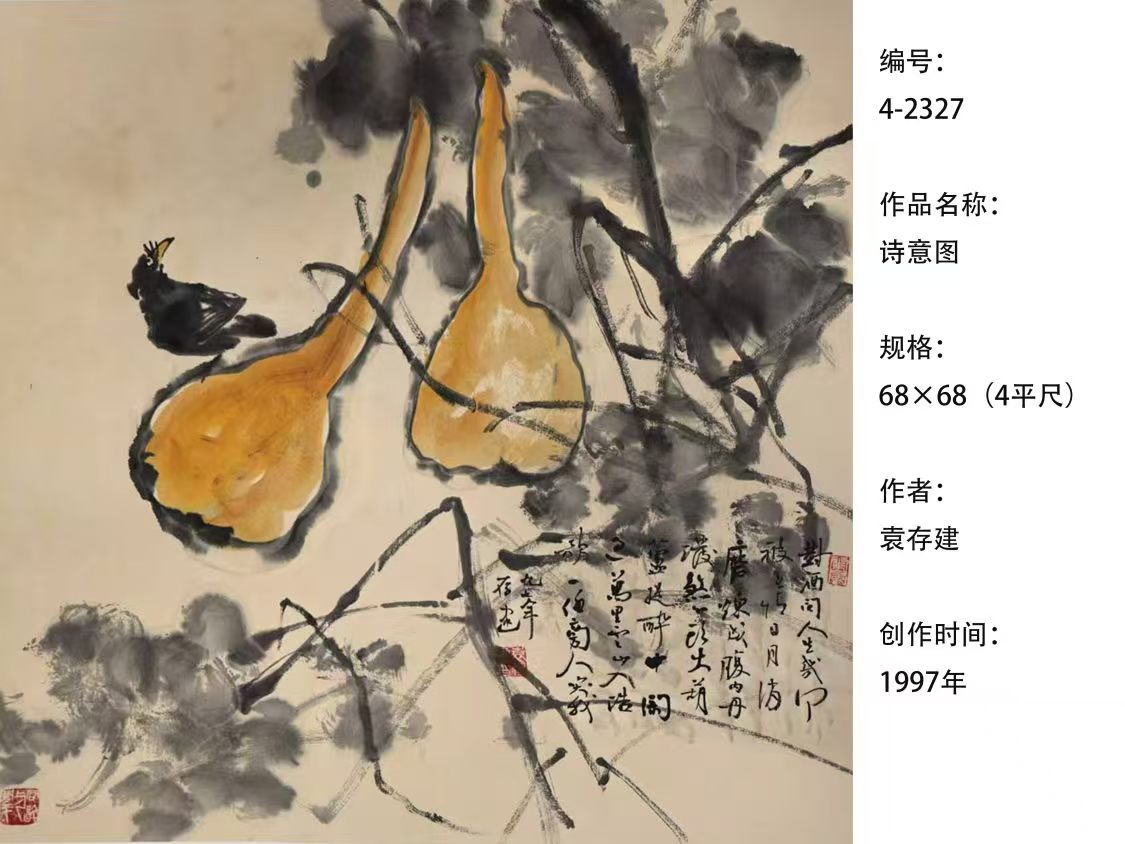 對酒问人生幾何
被无情日月消
磨煉成腹内丹
潑煞心头火葫
蘆提醉中闲
过萬里云山入浩
歌一任旁人笑我
九七年
存建
编号：
4-2327
作品名称：
诗意图
规格：
68×68（4平尺）
作者：
袁存建
创作时间：
1997年